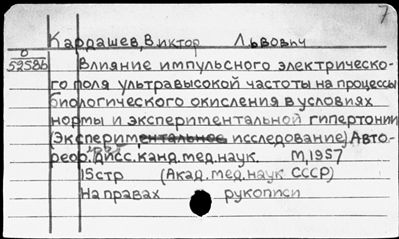 7
Кардашев, Виктор Львович
0
52586 Влияние импульсного электрическо-
го поля ультравысокой частоты на процессы
биологического окисления в условиях
нормы и экспериментальной гипертонии
(Экспериментальное исследование) Авто-
реф. дисс. канд. мед. наук. М, 1957
15стр (Акад. мед. наук СССР)
На правах рукописи